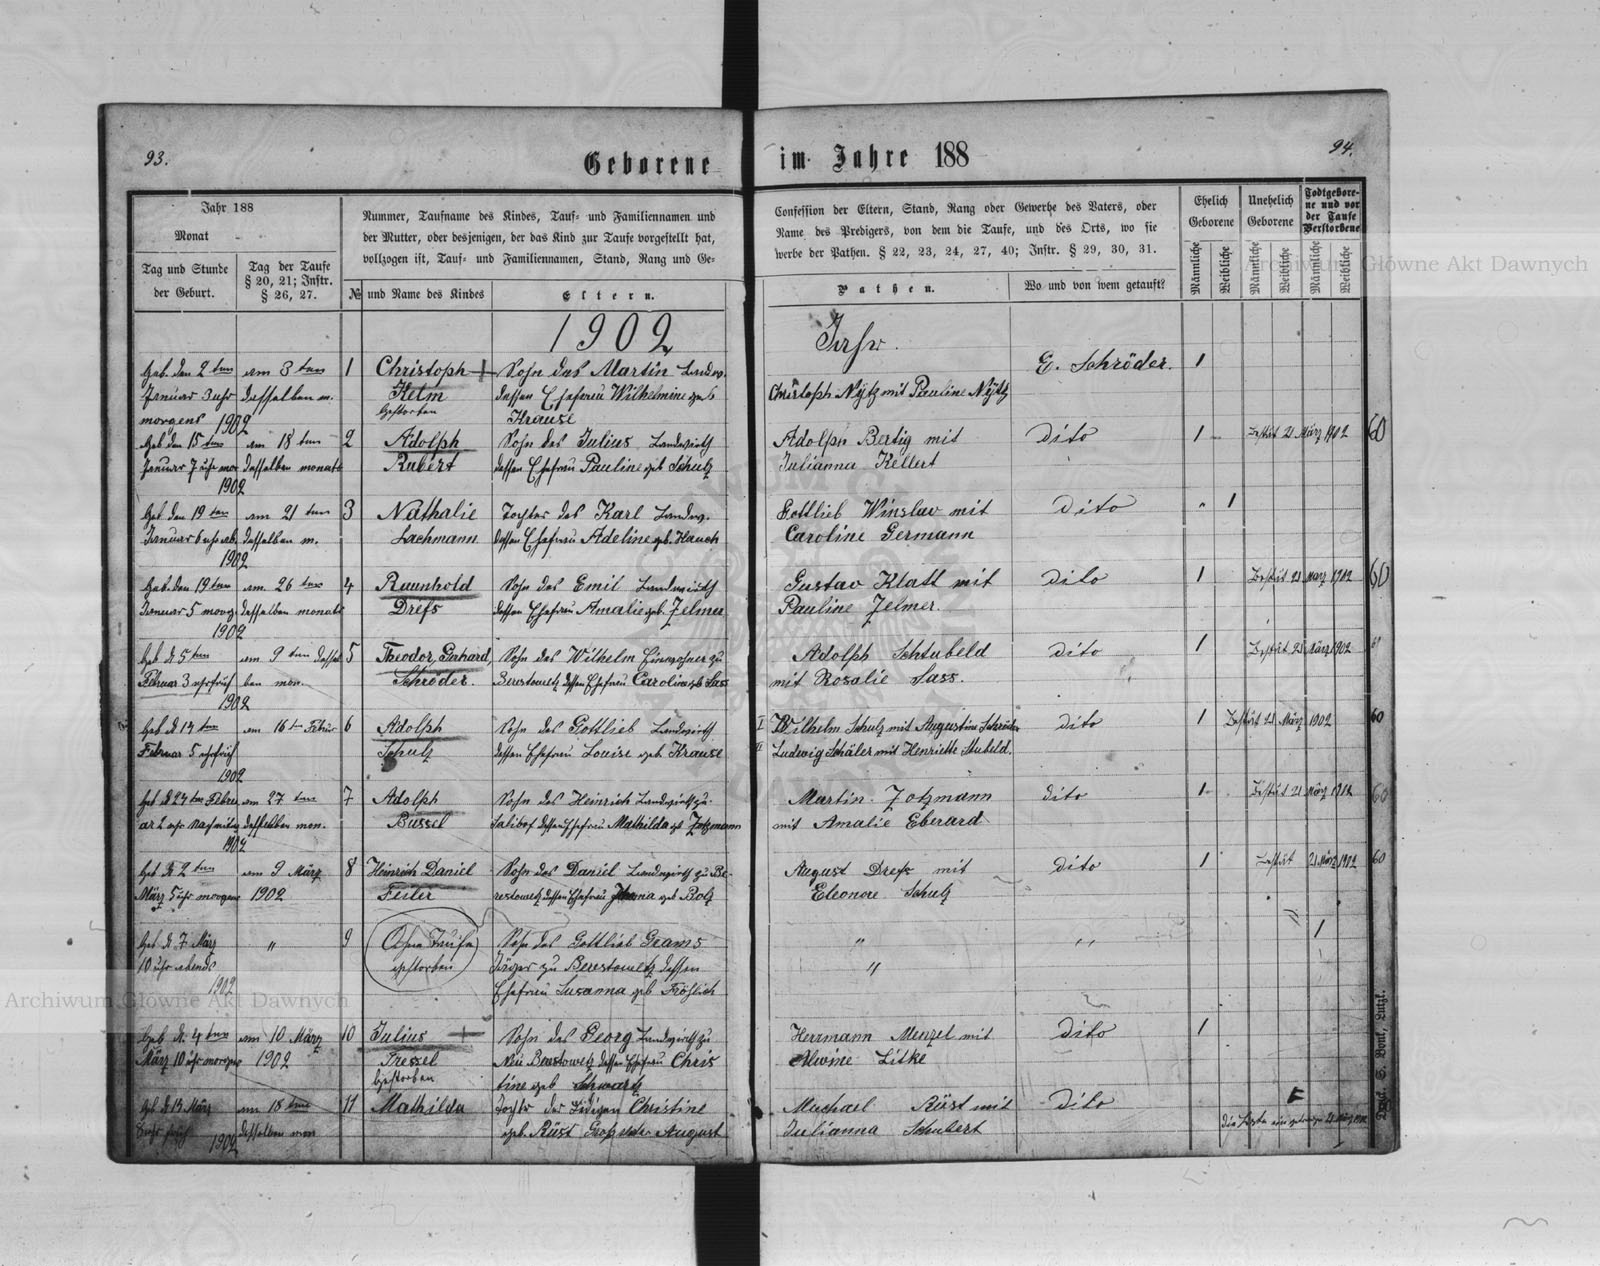 93.
Geborene im Jahre 188
94.
Jahr 188
Monat
Tag und Stunde
der Geburt.
Tag der Taufe
§ 20, 21; Instr.
§ 26, 27.
Nummer, Taufname des Kindes, Tauf- und Familiennamen und
der Mutter, oder desjenigen, der das Kind zur Taufe vorgestellt hat,
vollzogen ist, Tauf- und Familiennamen, Stand, Rang und Ge-
№ und Name des Kindes
Eltern.
Confession der Eltern, Stand, Rang oder Gewerbe des Vaters, oder
Name des Predigers, von dem die Taufe, und des Orts, wo sie
werbe der Pathen. § 22, 23, 24, 27, 40; Instr. § 29, 30, 31.
Pathen.
Wo und von wem getauft?
Ehelich
Geborene
Unehelich
Geborene
Todtgebore-
ne und vor
der Taufe
Verstorbene
Männliche
Weibliche
Männliche
Weibliche
Männliche
Weibliche
1902
Jahr.
Geb. den 2 ten
Januar 3 uhr
morgens 1902
am 3 ten
desselben m.
1
Christoph +
Helm
gestorben
Sohn des Martin Landw.
dessen Ehefrau Wilhelmine geb
Krause
Christoph Nÿtz mit Pauline Nÿtz
E. Schröder.
1
Geb den 15 ten
Januar 7 uhr mor
1902
am 18 ten
desselben monats
2
Adolph
Rubert
Sohn des Julius Landwirth
dessen Ehefrau Pauline geb Schulz
Adolph Bertig mit
Julianna Kellert
dito
1
21 März 1902
60
Geb den 19 ten
Januar 6 uhr ab.
1902
am 21 ten
desselben m.
3
Nathalie
Lachmann
Tochter des Karl Landw.
dessen Ehefrau Adeline geb. Hauch
Gottlieb Winslav mit
Caroline Germann
dito
" 1
Geb. den 19 ten
Januar 5 morg.
1902
am 26 ten
desselben monats
4
Raunhold
Drefs
Sohn des Emil Landwirth
dessen Ehefrau Amalie geb. Zelmer
Gustav Klatt mit
Pauline Zelmer.
dito
1
21 März 1902
60
Geb d 5 ten
Februar 3 uhr früh
1902
am 9 ten dessel
ben mon.
5
Theodor, Gerhard
Schröder.
Sohn des Wilhelm Einwohner zu
Berestowetz dessen Ehefrau Carolina geb Sass
Adolph Schtubeld
mit Rosalie Sass.
dito
1
März 1902
Geb d 14 ten
Februar 5 uhr früh
1902
am 16 ten Februar
6
Adolph
Schulz
Sohn des Gottlieb Landwirth
dessen Ehefrau Louise geb Krause
I Wilhelm Schulz mit Augustine Schröder
II Ludwig Schäler mit Henriette Stubeld.
dito
1
21 März 1902
60
Geb d 24 ten Febru
ar 2 uhr Nachmittag
1902
am 27 ten
desselben mon.
7
Adolph
Büssel
Sohn des Heinrich Landwirth zu
dessen Ehefrau Mathilda geb Zotzmann
Martin Zotzmann
mit Amalie Eberard
dito
1
21 März 1902
60
Geb d 2 ten
März 5 uhr morgens
am 9 März
1902
8
Heinrich Daniel
Feiler
Sohn des Daniel Landwirth zu Be-
restowetz dessen Ehefrau geb Bolz
August Drefs mit
Eleonore Schulz
dito
1
21 März 1902
60
Geb d 7 März
10 uhr abends
1902
"
9
Ohne Taufe
gestorben
Sohn des Gottlieb Grams
Jäger zu Berestowetz dessen
Ehefrau Susanna geb Fröhlich
"
"
"
1
Geb d. 4 ten
März 10 uhr morgens
am 10 März
1902
10
Julius +
Pressel
Gestorben
Sohn des Georg Landwirth zu
Neu Berestowetz dessen Ehefrau Chris
tine geb Schwartz
Herrmann Menzel mit
Alwine Litke
dito
1
Geb d 13 März
8 uhr früh 1902
am 18 ten
desselben mon
11
Mathilda
Tochter der Ledigen Christine
geb. Rüst Grofsvater August
Michael Rüst mit
Julianna Schubert
dito
Druck S. Bont, Lutzk.
Archiwum Główne Akt Dawnych
Archiwum Główne Akt Dawnych